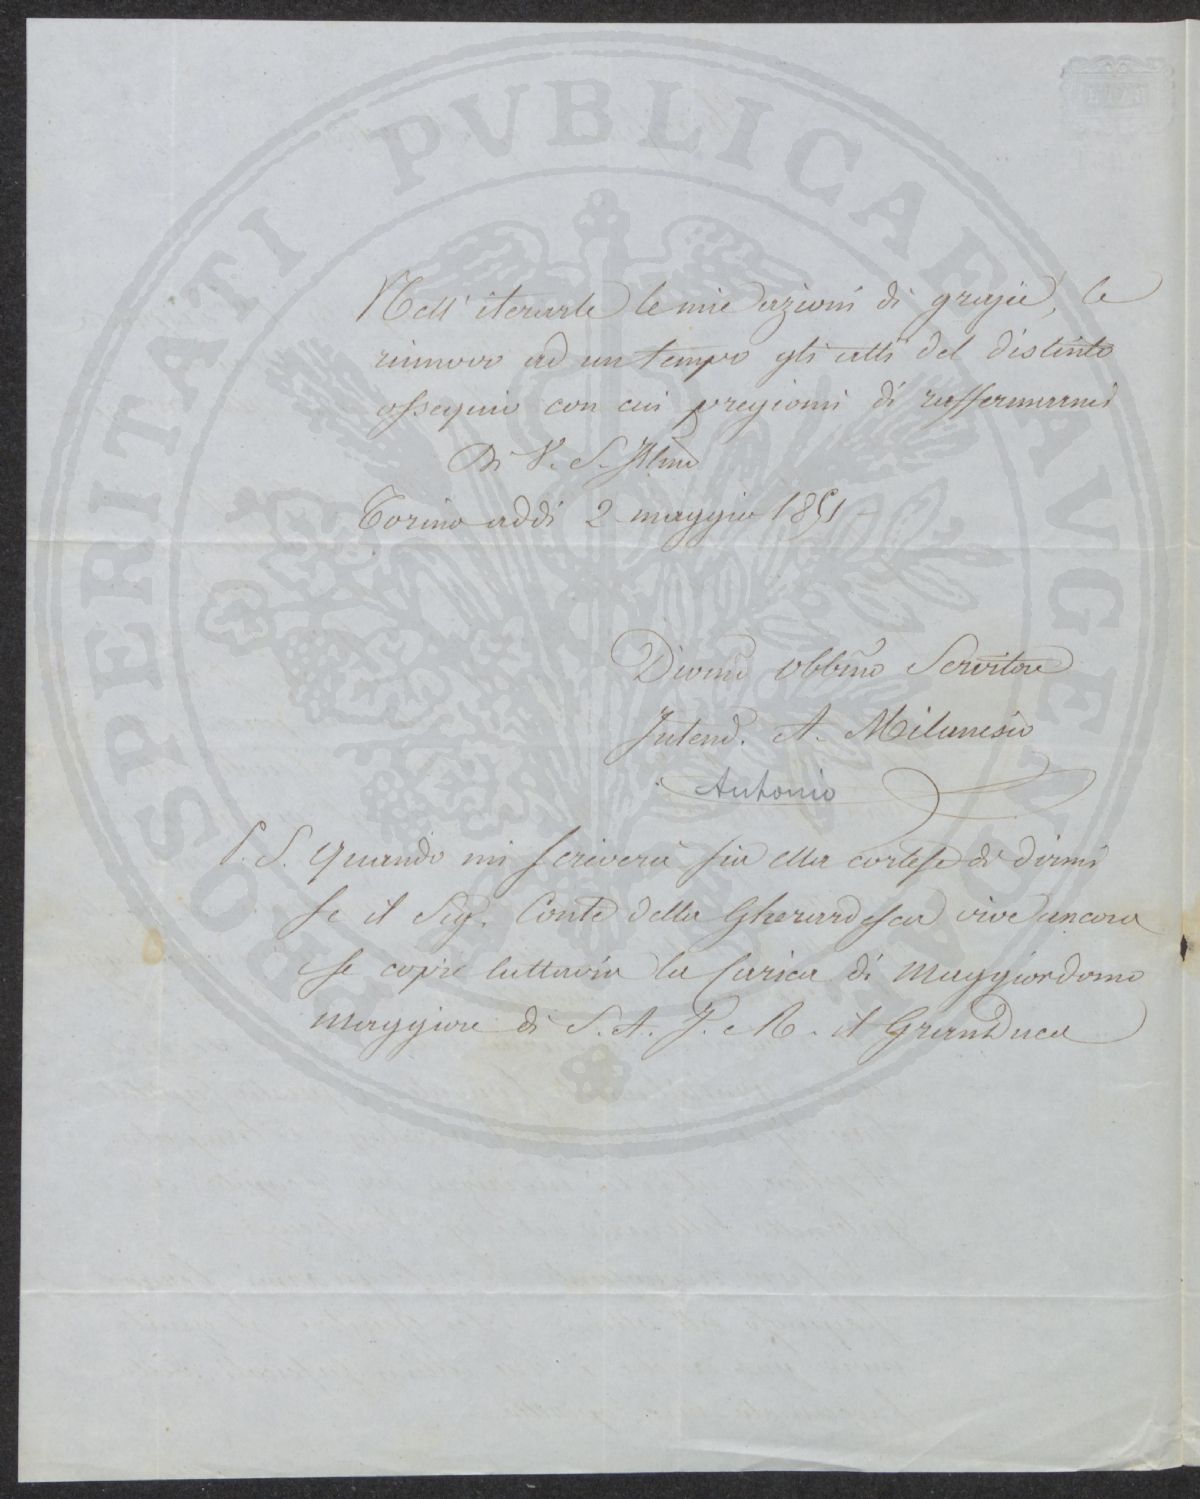 PROSPERITATI PVBLICAE AVGENDAE
Nell' iterarle le mie azioni di grazie, le
rinnovo ad un tempo gli atti del distinto
ossequio con cui pregiomi di raffermarmi
Di V. S. Illma
Torino addì 2 maggio 1851
Devmo Obbmo Servitore
Intend. A. Milanesio
Antonio
P. S. Quando mi scriverà sia ella cortese di dirmi
se il Sig. Conte della Gherardesca vive ancora
se copre tuttavia la carica di Maggiordomo
Maggiore di S. A. I. e R. il GranDuca